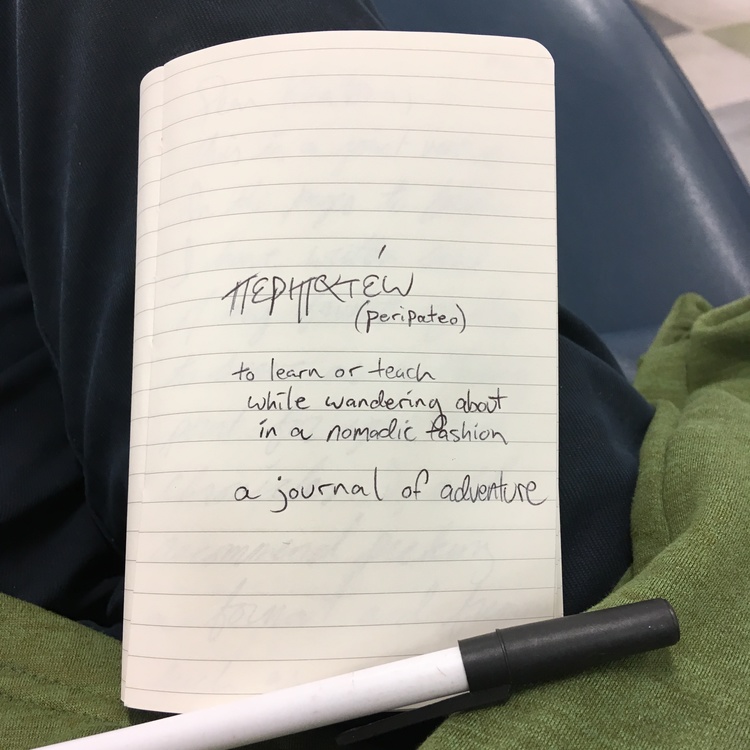 περιπατέω
(peripateo)
to learn or teach
while wandering about
in a nomadic fashion
a journal of adventure